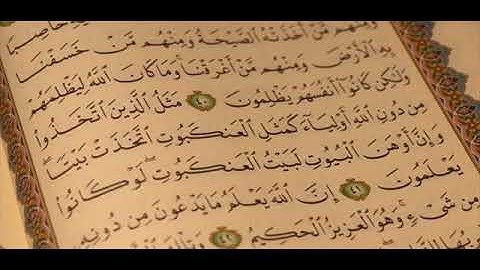 حَاصِبًا
وَمِنْهُم مَّنْ أَخَذَتْهُ الصَّيْحَةُ وَمِنْهُم مَّنْ خَسَفْنَا
بِهِ الْأَرْضَ وَمِنْهُم مَّنْ أَغْرَقْنَا وَمَا كَانَ اللَّهُ لِيَظْلِمَهُمْ
وَلَٰكِن كَانُوا أَنفُسَهُمْ يَظْلِمُونَ ٤٠ مَثَلُ الَّذِينَ اتَّخَذُوا
مِن دُونِ اللَّهِ أَوْلِيَاءَ كَمَثَلِ الْعَنكَبُوتِ اتَّخَذَتْ بَيْتًا
وَإِنَّ أَوْهَنَ الْبُيُوتِ لَبَيْتُ الْعَنكَبُوتِ لَوْ كَانُوا
يَعْلَمُونَ ٤١ إِنَّ اللَّهَ يَعْلَمُ مَا يَدْعُونَ مِن دُونِهِ
مِن شَيْءٍ وَهُوَ الْعَزِيزُ الْحَكِيمُ ٤٢ وَتِلْكَ